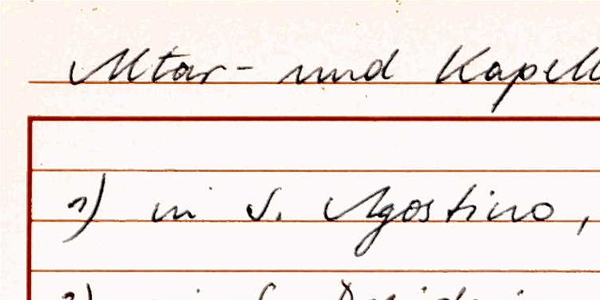 Altar- und Kapell
1) in S. Agostino,
2) in S.